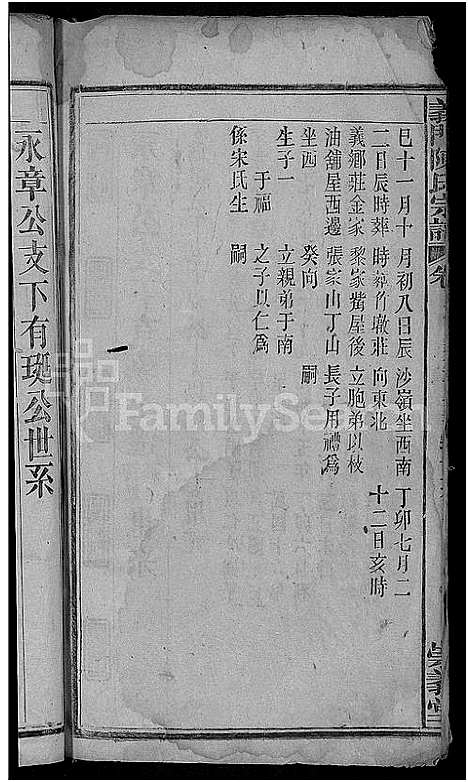 義門陳氏宗譜 卷
巳十一月十 月初八日辰 沙嶺坐西南 丁卯七月二
二日辰時葬 時葬竹墩莊 向東北 十二日亥時
義鄉莊金家 黎家嘴屋後 立胞弟以枝
油舖屋西邊 張家山丁山 長子用禮爲
坐酉 癸向 嗣
生子一 立親弟于南
于福 之子以仁爲
係宋氏生 嗣
崇義堂
永章公支下有珽公世系
FamilySearch